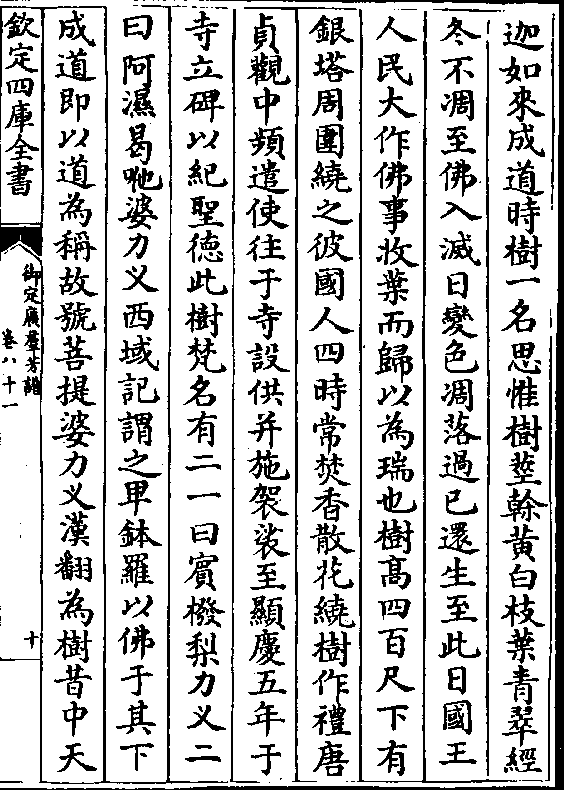 迦如來成道時樹一名思惟樹莖榦黄白枝葉青翠經
冬不凋至佛入滅日變色凋落過已還生至此日國王
人民大作佛事收葉而歸以為瑞也樹髙四百尺下有
銀塔周圍繞之彼國人四時常焚香散花繞樹作禮唐
貞觀中頻遣使往于寺設供并施袈裟至顯慶五年于
寺立碑以紀聖德此樹梵名有二一曰賓撥梨力义二
曰阿濕曷咃婆力义西域記謂之卑鉢羅以佛于其下
成道即以道為稱故號菩提婆力义漢翻為樹昔中天
欽定四庫全書
御定廣羣芳譜
卷八十一
十